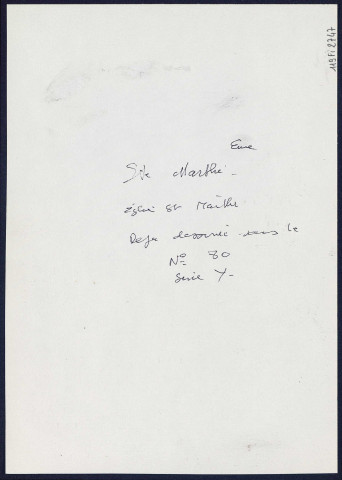 119 Fi 2747
Eure
Ste Marthe -
église Ste Marthe
Deja dessinée sous le
No 80
Serie Y -